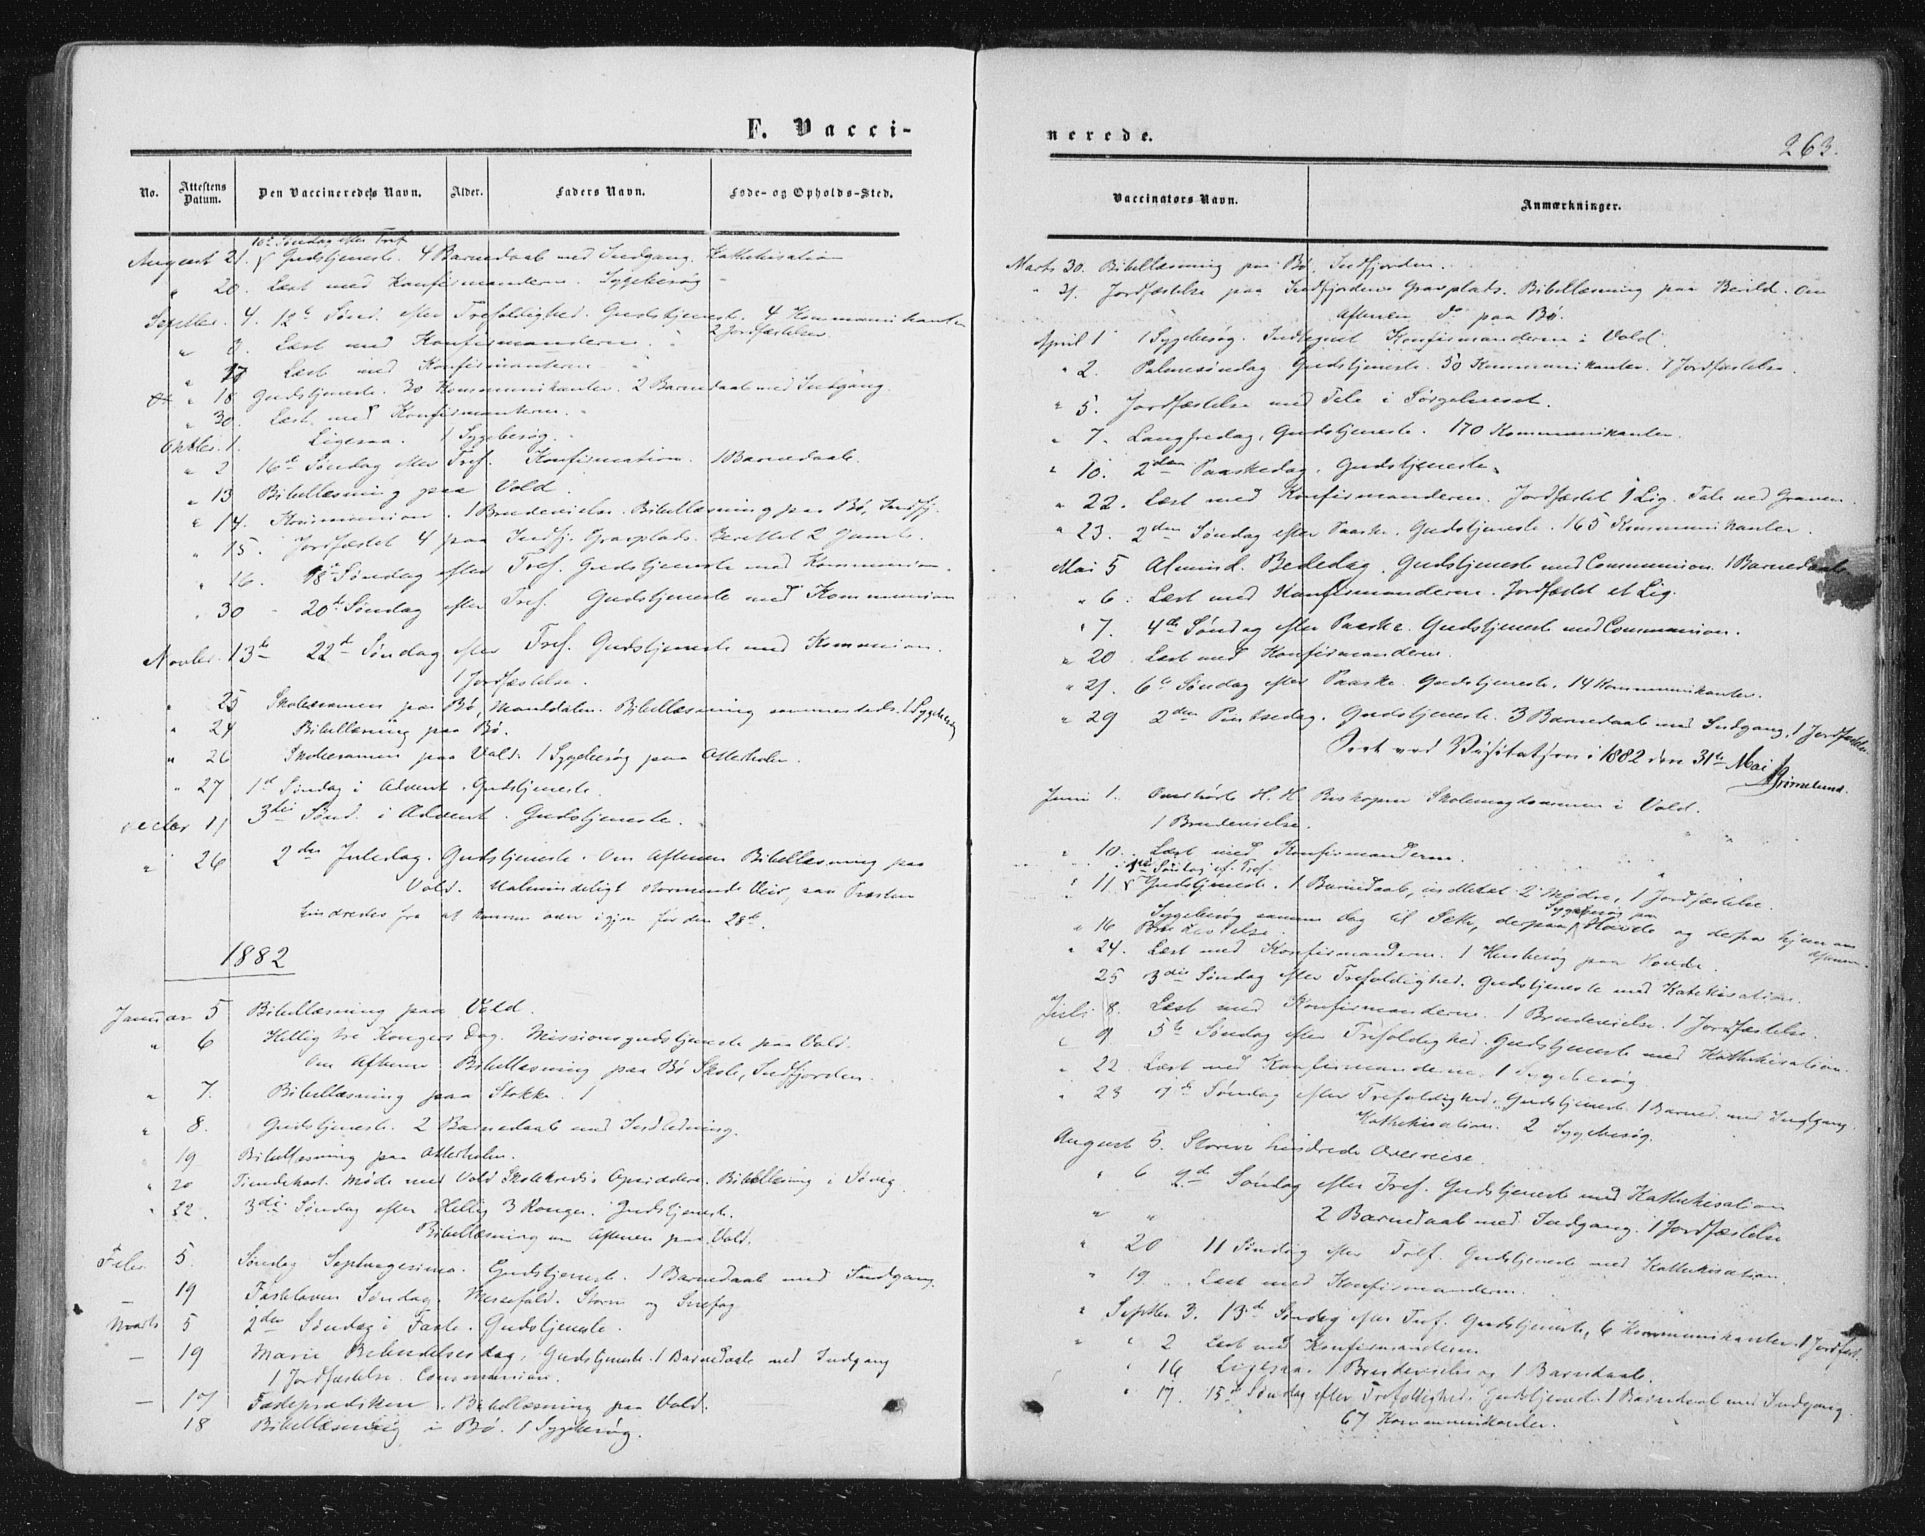 F. Vacci-
No.
Attestens Datum.
Den Vaccineredes Navn.
Alder.
Faders Navn.
Føde- og Opholds-Sted.
10de Søndag efter Tref.
August 21. Gudstjeneste. 4 Barnedaab med Indgang. Kathekisation
" 20. Læst med Konfirmanderne. Sygebesøg
Septbr. 4. 12te Sønd. efter Trefoldighed. Gudstjeneste. 4 Kommunikanter
2 Jordfæstelser
" Læst med Konfirmanderne.
" 17 Læst med Konfirmanterne
" 18 Gudstjeneste. 30 Kommunikanter. 2 Barnedaab med Indgang.
" 30. Læst med Konfirmanterne.
Oktbr. 1. Ligesaa. 1 Sygebesøg.
" 2 16de Søndag efter Tref. Konfirmation. 1 Barnedaab.
" 13 Bibellæsning paa Vold.
" 14. Kommunion. 1 Brudevielse. Bibellæsning paa Bø, Indfj.
" 15. Jordfæstet 4 paa Indfj. Gravplads. Berettet 2 Gamle.
" 16. 18de Søndag efter Tref. Gudstjeneste med Kommunion.
" 30 20de Søndag efter Tref. Gudstjeneste med Kommunion
Novbr. 13de 22de Søndag efter Tref. Gudstjeneste med Kommunion.
1 Jordfæstelse.
" 25 Skoleexamen paa Bø, Manddalen. Bibellæsning sammesteds. 1 Sygebesøg
" 24 Bibellæsning paa Bø.
" 26 Skoleexamen paa Vold. 1 Sygebesøg paa
" 27 1ste Søndag i Advent. Gudstjeneste.
Decbr 11 3die Sønd. i Advent. Gudstjeneste.
" 26 2den Juledag. Gudstjeneste. Om Aftenen Bibellæsning paa
Vold. Ualmindeligt stormende Veir, saa Præsten
hindredes fra at komme over igjen før den 28de.
1882
Januar 5 Bibellæsning paa Vold.
" 6 Hellig tre Kongers Dag. Missionsgudstjeneste paa Vold.
Om Aftenen Bibellæsning paa Bø Skole, Indfjorden.
" 7. Bibellæsning paa Stokke. 1
" 8. Gudstjeneste. 2 Barnedaab med Indledning.
" 19 Bibellæsning paa
" 20 Møde med Vold Skolekreds's Bibellæsning i
" 22. 3die Søndag efter Hellig 3 Konger. Gudstjeneste.
Bibellæsning om Aftenen paa Vold.
Febr. 5. Søndag Septuagesima. Gudstjeneste. 1 Barnedaab med Indgang.
19 Fastelavns Søndag. Messefald. Storm og Snefog
Marts 5 2den Søndag i Faste. Gudstjeneste.
— 19 Marie Bebudelsesdag. Gudstjeneste. 1 Barnedaab med Indgang
1 Jordfæstelse. Communion.
— 17 Fasteprædiken. Bibellæsning paa Vold.
18 Bibellæsning i Bø. 1 Sygebesøg.
nerede.
263.
Vaccinators Navn.
Anmærkninger.
Marts 30. Bibellæsning paa Bø, Indfjorden.
" 31. Jordfæstelse paa Indfjordens Gravplads. Bibellæsning paa Berild. Om
Aftenen Do paa Bø.
April 1 1 Sygebesøg. Indtegnet Konfirmanderne i Vold.
" 2. Palmesøndag. Gudstjeneste. 50 Kommunikanter. 1 Jordfæstelse.
" 5. Jordfæstelse med Tale i Sørgehuset.
" 7. Langfredag, Gudstjeneste. 170 Kommunikanter.
" 10. 2den Paaskedag. Gudstjeneste.
" 22. Læst med Konfirmanderne. Jordfæstet 1 Lig. Tale ved Graven.
" 23. 2den Søndag efter Paaske. Gudstjeneste. 165 Kommunikanter.
Mai 5 Almind. Bededag. Gudstjeneste med Communion. 1 Barnedaab.
" 6. Læst med Konfirmanderne. Jordfæstet et Lig.
" 7. 4de Søndag efter Paaske. Gudstjeneste med Communion.
" 20 Læst med Konfirmanderne.
" 21. 6te Søndag efter Paaske. Gudstjeneste. 14 Kommunikanter.
" 29 2den Pintsedag. Gudstjeneste. 3 Barnedaab med Indgang, 1 Jordfæstelse
ved Visitatsen i 1882 den 31te Mai
Grimelund.
Juni 1. Overhørte H. H. Biskopen i Vold.
1 Brudevielse.
" 10. Læst med Konfirmanderne.
1ste Søndag ef. Tref.
" 11 Gudstjeneste. 1 Barnedaab, indledet 2 Mødre, 1 Jordfæstelse.
Sygebesøg samme dag til Sæk, derpaa Sygebesøg paa Hovde og derfra hjem om Aftenen.
" 16 Brudevielse.
" 24. Læst med Konfirmanderne. 1 Husbesøg paa Hovde.
25 3die Søndag efter Trefoldighed. Gudstjeneste med Katekisation.
Juli 8. Læst med Konfirmanderne. 1 Brudevielse. 1 Jordfæstelse.
" 9 5te Søndag efter Trefoldighed. Gudstjeneste med Kathekisation.
" 22. Læst med Konfirmanderne. 1 Sygebesøg
" 23 7de Søndag efter Trefoldighed. Gudstjeneste. 1 Barned. med Indgang.
Kathekisation. 2 Sygebesøg.
August 5. Storm hindrede Overreise.
" 6 9de Søndag efter Tref. Gudstjeneste med Kathekisation
" " 2 Barnedaab med Indgang. 1 Jordfæstelse
" 20 11 Søndag efter Tref. Gudstjeneste med Kathekisation.
" 19 Læst med Konfirmanderne.
" Septbr 3. 13de Søndag efter Tref. Gudstjeneste, 6 Kommunikanter. 1 Jordfæst.
" " 2 Læst med Konfirmanderne
" 16 Ligesaa. 1 Brudevielse og 1 Barnedaab.
" 17. 15de Søndag efter Trefoldighed. Gudstjeneste. 1 Barnedaab med Indgang.
67 Kommunikanter.